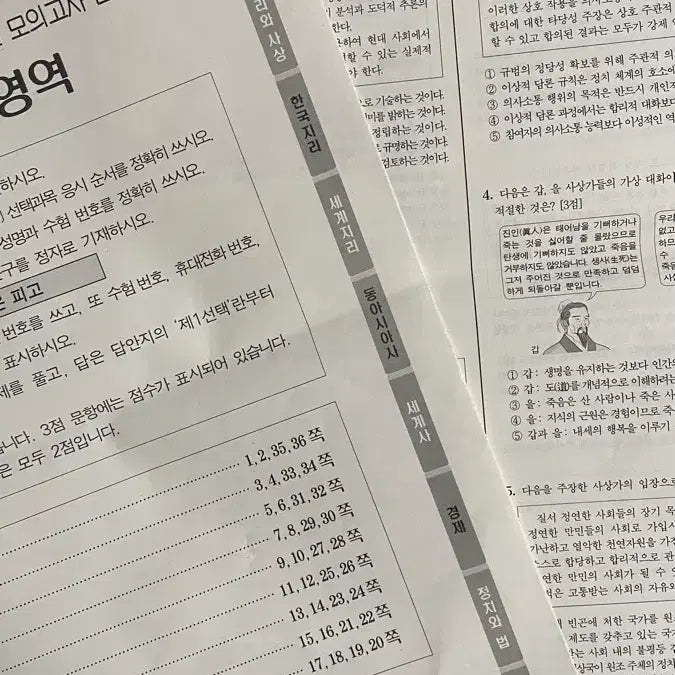 모의고사
영역
하시오.
선택과목 응시 순서를 정확히 쓰시오.
성명과 수험 번호를 정확히 쓰시오.
정자로 기재하시오.
피고
번호를 쓰고, 또 수험 번호, 휴대전화 번호,
표시하시오.
풀고, 답은 답안지의 '제1선택'란부터
3점 문항에는 점수가 표시되어 있습니다.
모두 2점입니다.
1, 2, 35, 36쪽
3, 4, 33, 34쪽
5, 6, 31, 32쪽
7, 8, 29, 30쪽
9, 10, 27, 28쪽
11, 12, 25, 26쪽
13, 14, 23, 24쪽
15, 16, 21, 22쪽
17, 18, 19, 20쪽
리와 사상
한국지리
세계지리
동아시아사
세계사
경제
정치와 법
분석과 도덕적 추론의
한다.
하여 현대 사회에서
할 수 있는 실제적
야 한다.
로 기술하는 것이다.
미를 밝히는 것이다.
정립하는 것이다.
규명하는 것이다.
검토하는 것이다.
이러한 상호 작용을
합의에 대한 타당성 주장은 상호 주관적
할 수 있고 합의된 결과는 모두가 강제
① 규범의 정당성 확보를 위해 주관적
② 이상적 담론 규칙은 정치 체계의 호소에
③ 의사소통 행위의 목적은 반드시 개인
④ 이상적 담론 과정에서는 합리적 대화보다
⑤ 참여자의 의사소통 능력보다 이성적인
4. 다음은 갑, 을 사상가들의 가상 대화이
적절한 것은? [3점]
진인(眞人)은 태어남을 기뻐하거나
죽는 것을 싫어할 줄 몰랐으므로
탄생에 기뻐하지도 않았고 죽음을
거부하지도 않았습니다. 생사(生死)는
그저 주어진 것으로 만족하고 덤덤
하게 되돌아갈 뿐입니다.
우리
없고
하므
수
죽음
갑
① 갑 : 생명을 유지하는 것보다 인간의
② 갑 : 도(道)를 개념적으로 이해하려는
③ 을 : 죽음은 산 사람이나 죽은 사
④ 을 : 지식의 근원은 경험이므로 죽
⑤ 갑과 을 : 내세의 행복을 이루기
5. 다음을 주장한 사상가의 입장으로
질서 정연한 사회들의 장기 목
정연한 만민들의 사회로 가입시
가난하고 열악한 천연자원을 가
스스로 합당하고 합리적으로 관
연한 만민의 사회가 될 수
고통받는 사회의 자유와
빈곤에 처한 국가를 원
제도를 갖추고 있는 국가
사회 내의 불평등
원조 주체의 정치